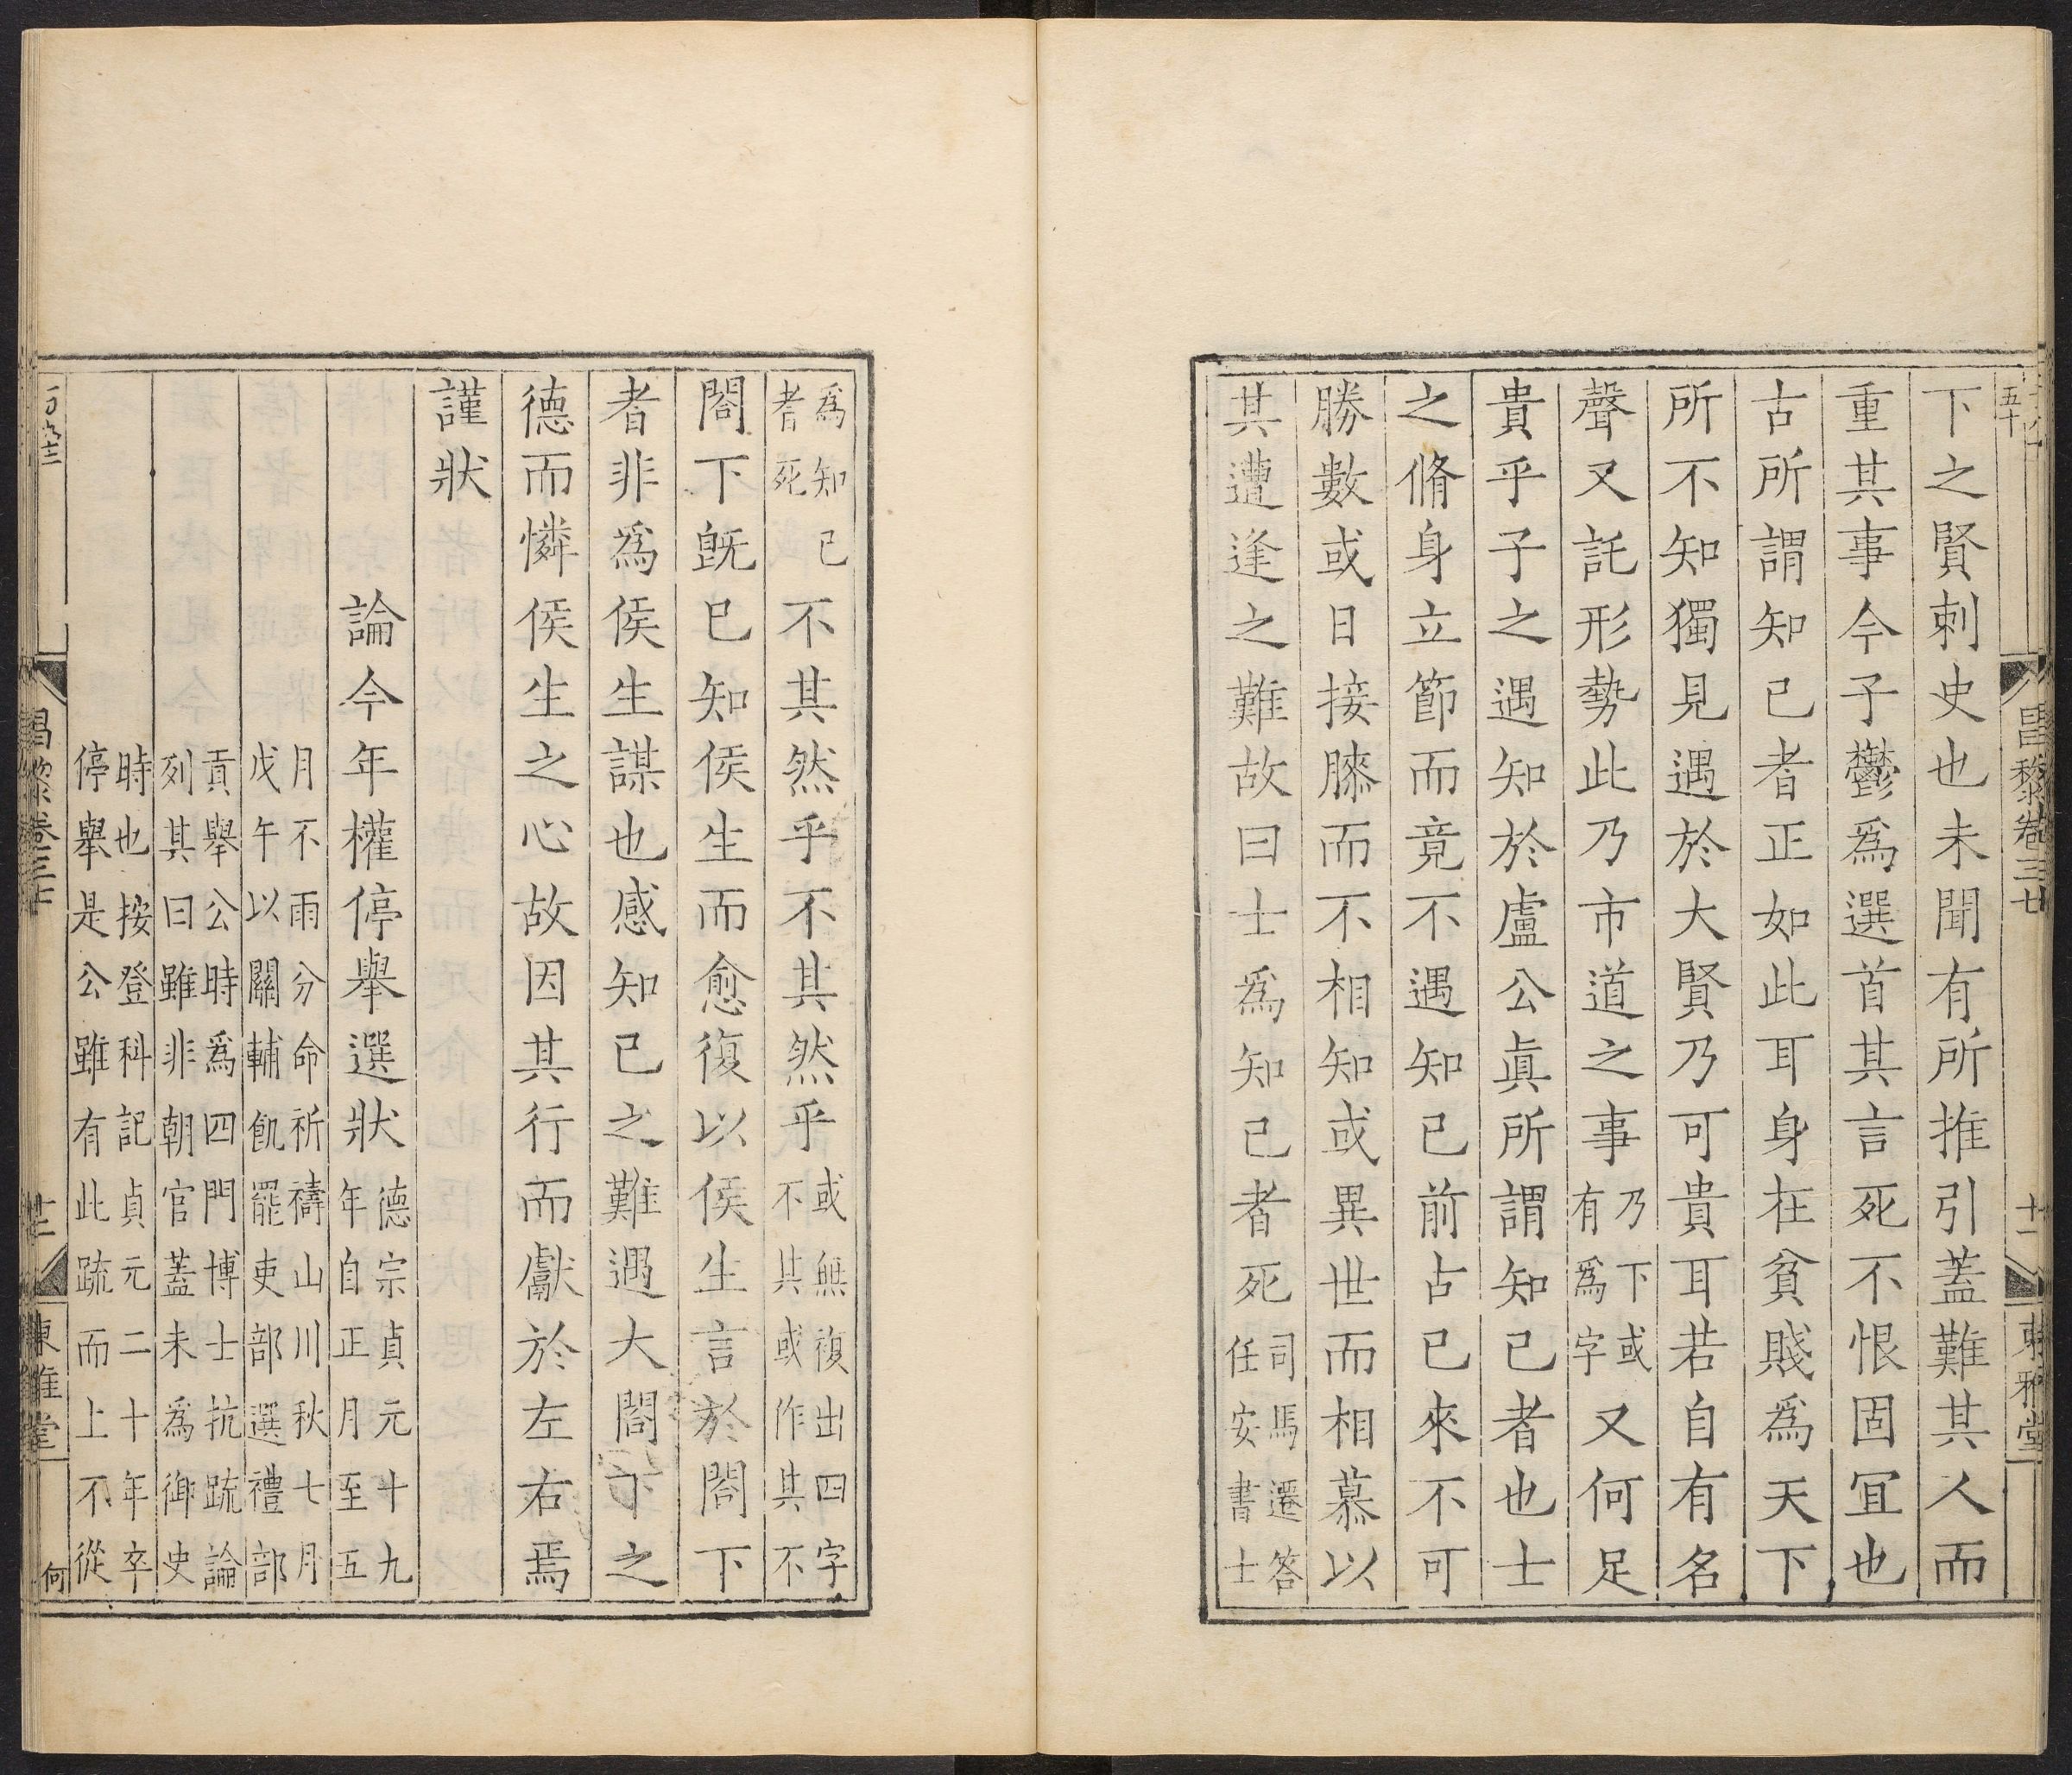 下之賢刺史也未聞有所推引蓋難其人而
重其事今子鬱爲選首其言死不恨固宜也
古所謂知己者正如此耳身在貧賤爲天下
所不知獨見遇於大賢乃可貴耳若自有名
聲又託形勢此乃市道之事乃下或有爲字又何足
貴乎子之遇知於盧公眞所謂知己者也士
之脩身立節而竟不遇知已前占已來不可
勝數或日接膝而不相知或異世而相慕以
其遭逢之難故曰士爲知己者死司馬遷答任安書士
爲知己者死不其然乎不其然乎或無複出四字不其或作其不
閤下旣已知侯生而愈復以侯生言於閤下
者非爲侯生謀也感知己之難遇大閤下之
德而憐侯生之心故因其行而獻於左右焉
謹狀
論今年權停舉選狀德宗貞元十九年自正月至五
月不雨分命祈禱山川秋七月戊午以關輔飢罷吏部選禮部
貢舉公時爲四門博士抗疏論列其曰雖非朝官蓋未爲御史
時也按登科記貞元二十年卒停舉是公雖有此疏而上不從
東雅堂
何
昌黎卷三十七
十一
東雅堂